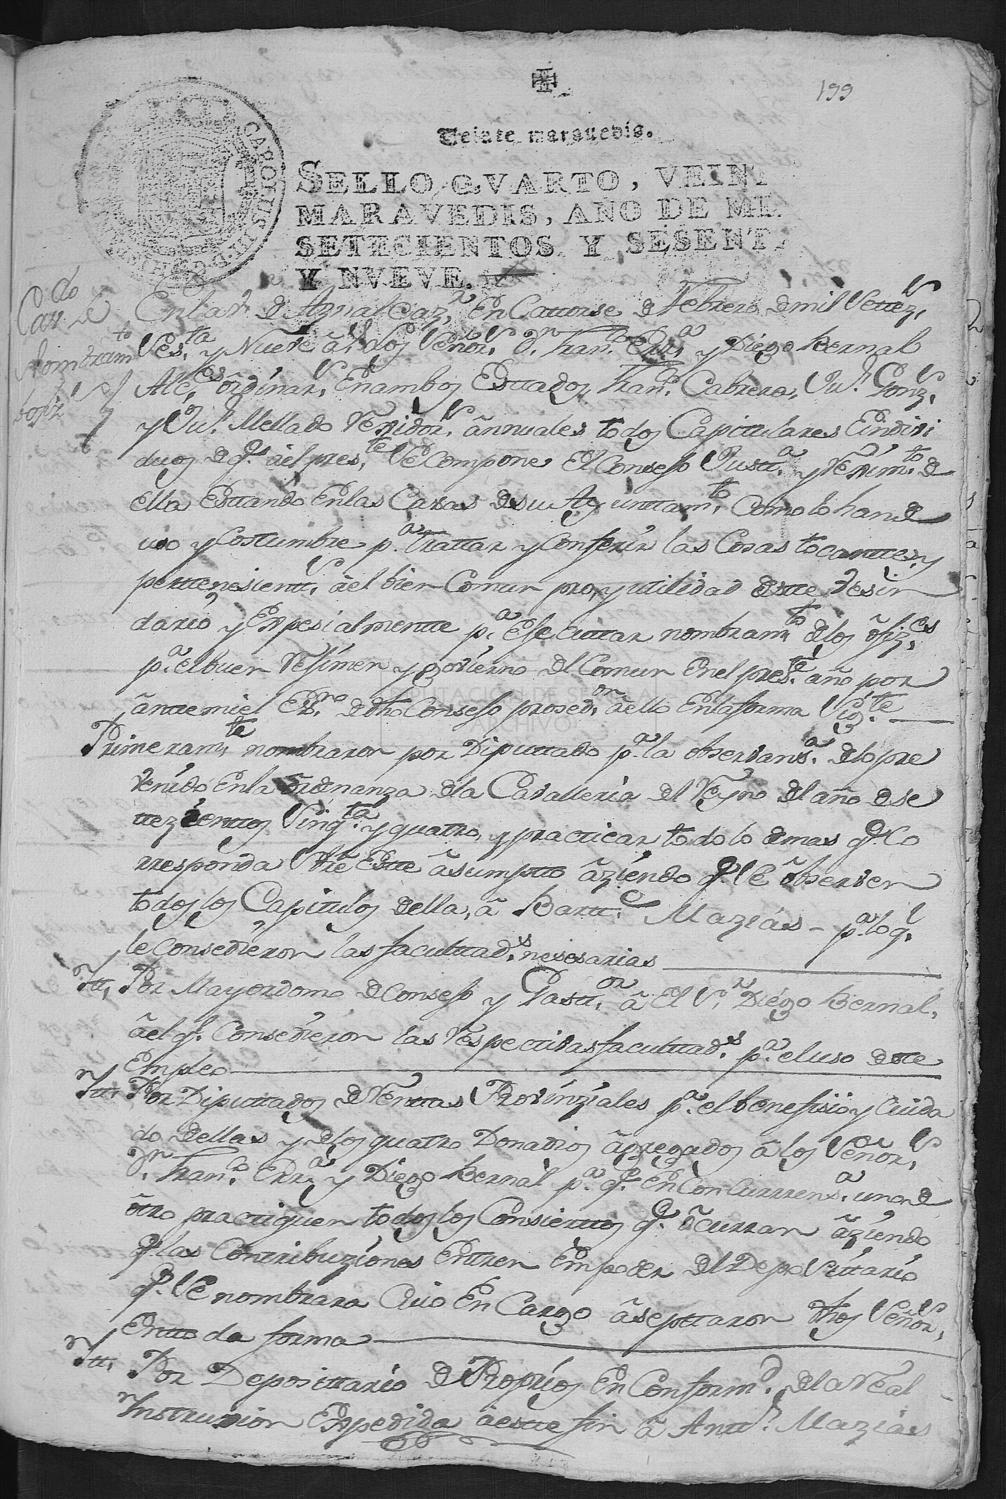 199
Veinte maravedis.
SELLO QVARTO, VEINT
MARAVEDIS, AÑO DE MIL
SETECIENTOS Y SESENT
Y NVEVE.
CAROLUS III D G HISPAN
Cav.do de
Nombram.to
En la v.a de Aznalcaz.r En Catorse de Febrero de mil Settez.s
Ses.ta y Nueve a.s los Señor.s D.n Fran.co y Diego Bernal
Alc.des ordinar.s En ambos Esttados, Fran.co Cabrera, Ju.n Gonz.s
y Ju.n Mellado Rexidor.s annuales todos Capittulares Eindivi
duos de q.e al pres.te Se compone El Consejo Justt.a y Rexim.to de
ella Esttando En las Casas de su Ayunttam.to Como lo han de
uso y Costumbre p.a trattar y Conferir las Cosas tocanttes y
perttenesientt.s a el bien Comun pro, y utilidad de este Vesin
dario y Expesialmentte p.a Exsecuttar nombram.to de los ofiz.es
p.a el buen Rejimen y govierno del Comun En el pres.te año por
antte mi el Ess.no de dho Consejo prosed.on a ello En la forma Sig.te
Primeram.te nombraron por Diputtado p.a la observans.a de lo pre
venido En la ordenanza de la Cavalleria del Reyno del año de se
ttezienttos Sinq.ta y quattro, y practicar todo lo demas q.e Co
rresponda Sre Este asumptto aziendo q.e Se observen
todos los Capittulos della, a Bartt.e Mazias - p.a lo q.l
le Consedieron las facultad.s nesesarias
Itt. Por Mayordomo de Consejo y Posit.o a El S.r Diego Bernal,
a el q.l Consedieron las Respecttivas facultad.s p.a el uso de este
Empleo
Itt. Por Diputtados de Renttas Provinziales p.a el benefisio y Cuida
do dellas y de los quattro Donadios agregados a los Señor.s
D.n Fran.co y Diego Bernal p.a q.e En Concurrens.a uno de
otro pracctiquen todos los Consierttos q.e ocurran aziendo
q.e las Contribuziones Enttren Em poder del Deposittario
q.e Se nombrara Cuio En Cargo aseptaron dhos Señor.s
En ttoda forma
Itt. Por Deposittario de Propios En Conform.d de la Real
Instrucion Expedida a este fin a Antt.o Mazias
DIPUTACIÓN DE SEVILLA
ARCHIVOS